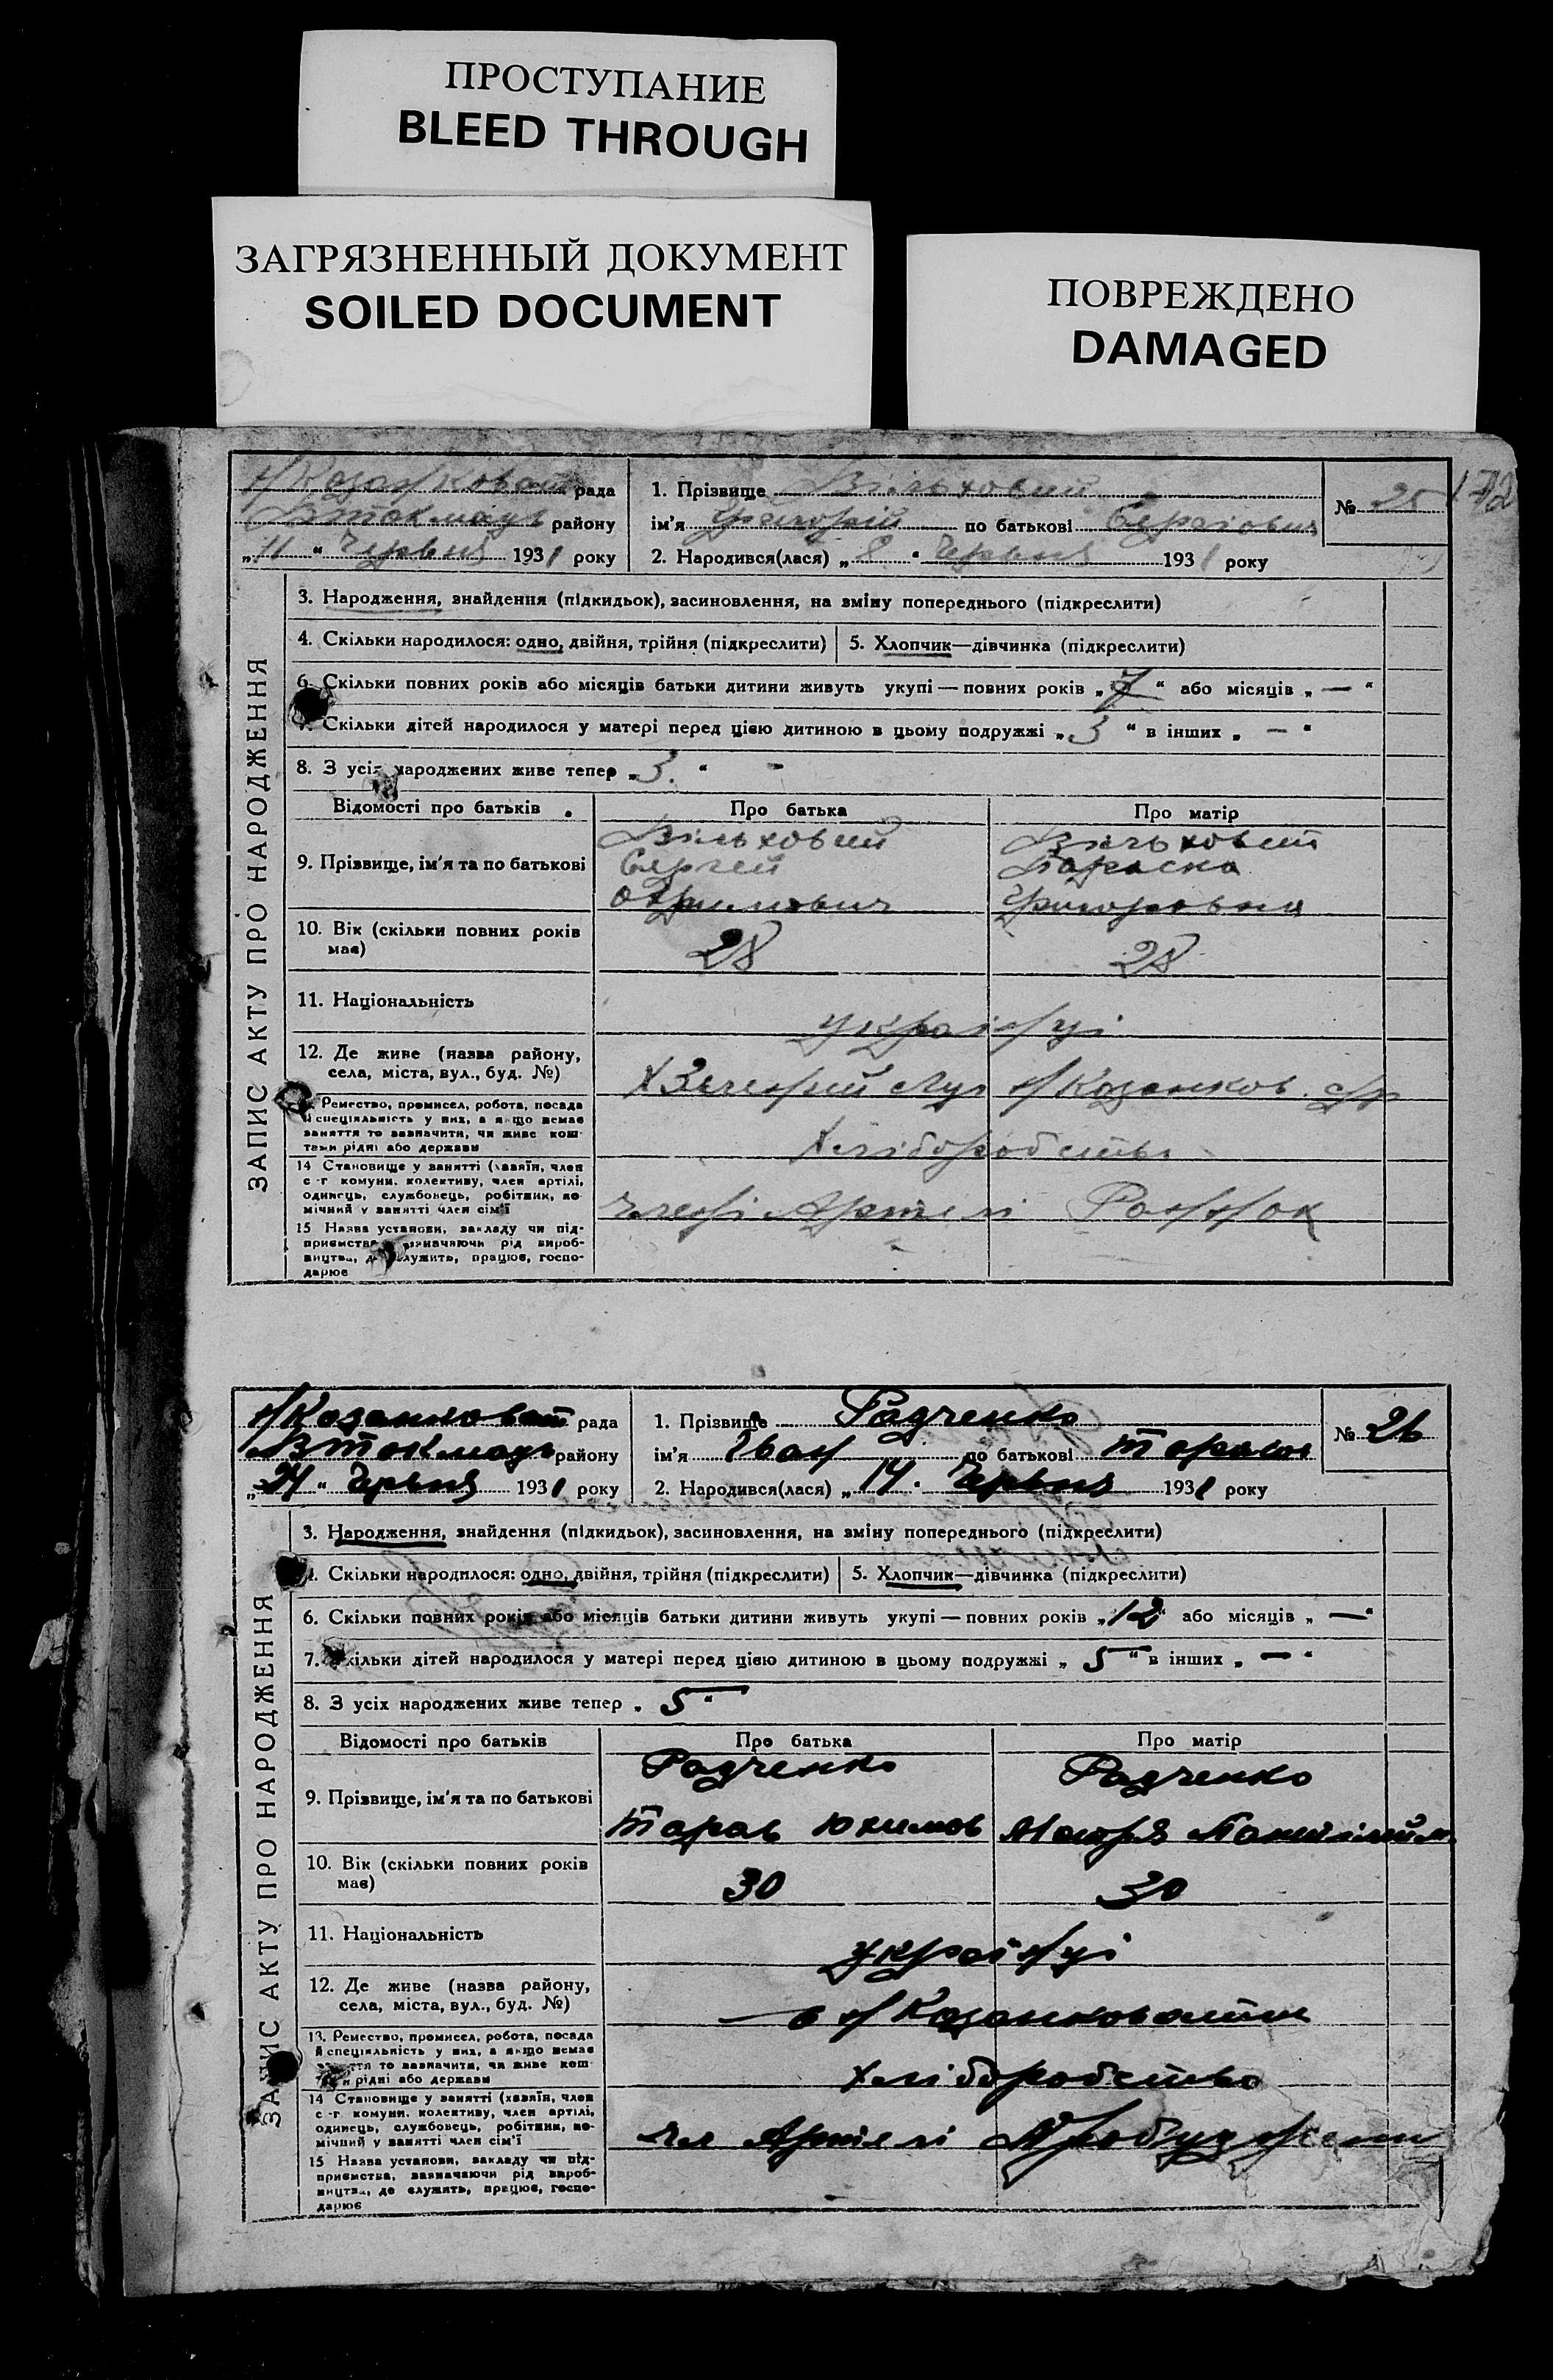 ПРОСТУПАНИЕ
BLEED THROUGH
ЗАГРЯЗНЕННЫЙ ДОКУМЕНТ
SOILED DOCUMENT
ПОВРЕЖДЕНО
DAMAGED
172
рада
району
„11“ Червня 1931 року
1. Прізвище Вільховий
ім'я Григорій по батькові Сергіович
2. Народився(лася) „8“ Червня 1931 року
№ 25
ЗАПИС АКТУ ПРО НАРОДЖЕННЯ
3. Народження, знайдення (підкидьок), засиновлення, на зміну попереднього (підкреслити)
4. Скільки народилося: одно, двійня, трійня (підкреслити)
5. Хлопчик—дівчинка (підкреслити)
6. Скільки повних років або місяців батьки дитини живуть укупі — повних років „7“ або місяців „—“
Скільки дітей народилося у матері перед цією дитиною в цьому подружжі „3“ в інших „—“
8. З усіх народжених живе тепер „3.“
Відомості про батьків
Про батька
Про матір
9. Прізвище, ім'я та по батькові
Вільховий
Сергей
Вільховий
Параска
Григоровна
10. Вік (скільки повних років
має)
28
28
11. Національність
українці
12. Де живе (назва району,
села, міста, вул., буд. №)
Ремество, промисел, робота, посада
й спеціяльність у них, а якщо немає
заняття то зазначити, чи живе кош-
тами рідні або держави
Хліборобство
14 Становище у занятті (хазяїн, член
с.-г комуни, колективу, член артілі,
одинець, службовець, робітник, по-
мічний у занятті член сім'ї
члени Артелі Ранок
15 Назва установи, закладу чи під-
приємства, зазначаючи рід вироб-
ництва, де служить, працює, госпо-
дарює
рада
району
„21“ Червня 1931 року
1. Прізвище Радченко
ім'я Іван по батькові Тарасов
2. Народився(лася) „14“ Червня 1931 року
№ 26
ЗАПИС АКТУ ПРО НАРОДЖЕННЯ
3. Народження, знайдення (підкидьок), засиновлення, на зміну попереднього (підкреслити)
4. Скільки народилося: одно, двійня, трійня (підкреслити)
5. Хлопчик—дівчинка (підкреслити)
6. Скільки повних років або місяців батьки дитини живуть укупі — повних років „12“ або місяців „—“
7. Скільки дітей народилося у матері перед цією дитиною в цьому подружжі „5“ в інших „—“
8. З усіх народжених живе тепер „5“
Відомості про батьків
Про батька
Про матір
9. Прізвище, ім'я та по батькові
Радченко
Тарас Юхимов
Радченко
10. Вік (скільки повних років
має)
30
30
11. Національність
українці
12. Де живе (назва району,
села, міста, вул., буд. №)
13. Ремество, промисел, робота, посада
й спеціяльність у них, а якщо немає
заняття то зазначити, чи живе кош-
тами рідні або держави
Хліборобство
14 Становище у занятті (хазяїн, член
с.-г комуни, колективу, член артілі,
одинець, службовець, робітник, по-
мічний у занятті член сім'ї
чл Артелі
15 Назва установи, закладу чи під-
приємства, зазначаючи рід вироб-
ництва, де служить, працює, госпо-
дарює